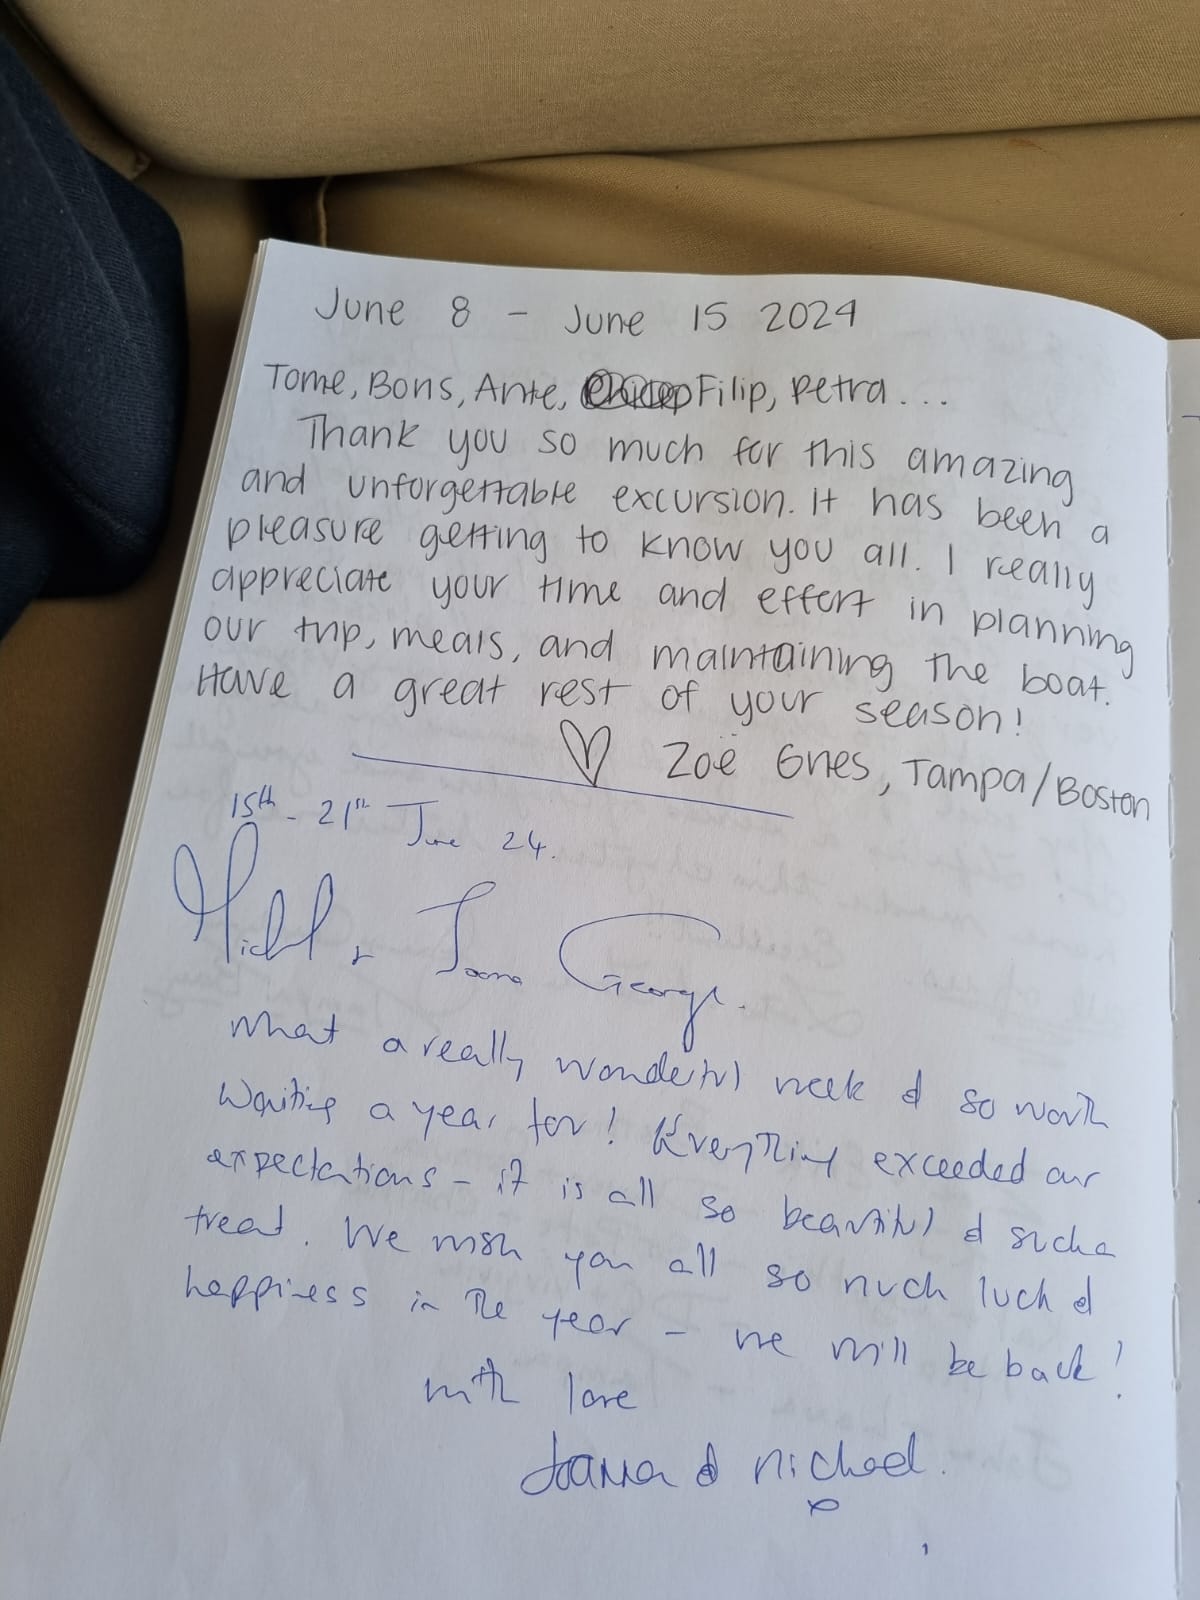 June 8 - June 15 2024
Tome, Boris, Ante, Filip, Petra...
Thank you so much for this amazing
and unforgettable excursion. It has been a
pleasure getting to know you all. I really
appreciate your time and effort in planning
our trip, meals, and maintaining the boat.
Have a great rest of your season!
♡ Zoë Gries, Tampa/Boston
15th - 21st June 24.
Michael & Joanna George.
What a really wonderful week & so worth
waiting a year for! Everything exceeded our
expectations - it is all so beautiful & such a
treat. We wish you all so much luck &
happiness in the year - we will be back!
with love
Joanna & Michael.
x